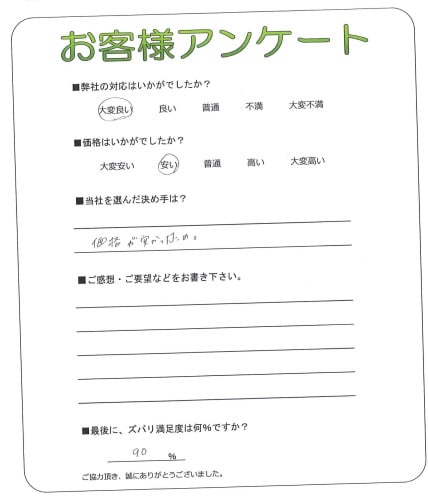 お客様アンケート
■弊社の対応はいかがでしたか？
大変良い 良い 普通 不満 大変不満
■価格はいかがでしたか？
大変安い 安い 普通 高い 大変高い
■当社を選んだ決め手は？
価格が安かったため。
■ご感想・ご要望などをお書き下さい。
■最後に、ズバリ満足度は何％ですか？
90 ％
ご協力頂き、誠にありがとうございました。